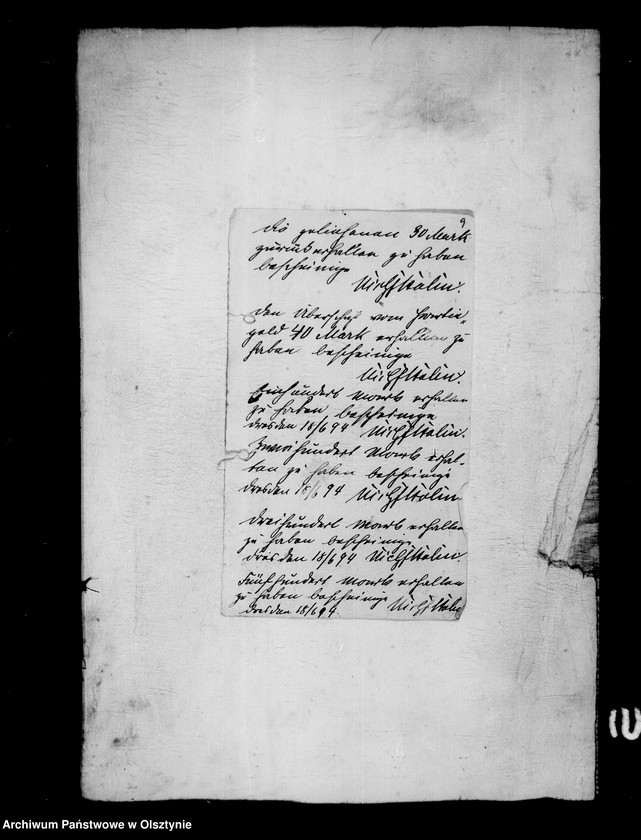 9
die geliehenen 30 Mark
zurückerhalten zu haben
bescheinige
den Überschuß vom
geld 40 Mark erhalten zu
haben bescheinige
Einhundert Mark erhalten
zu haben bescheinige
Dresden 18/6 94
Zweihundert Mark erhal-
ten zu haben bescheinige
Dresden 18/6 94
Dreihundert Mark erhalten
zu haben bescheinige
Dresden 18/6 94
Fünfhundert Mark erhalten
zu haben bescheinige
Dresden 18/6 94
Archiwum Państwowe w Olsztynie